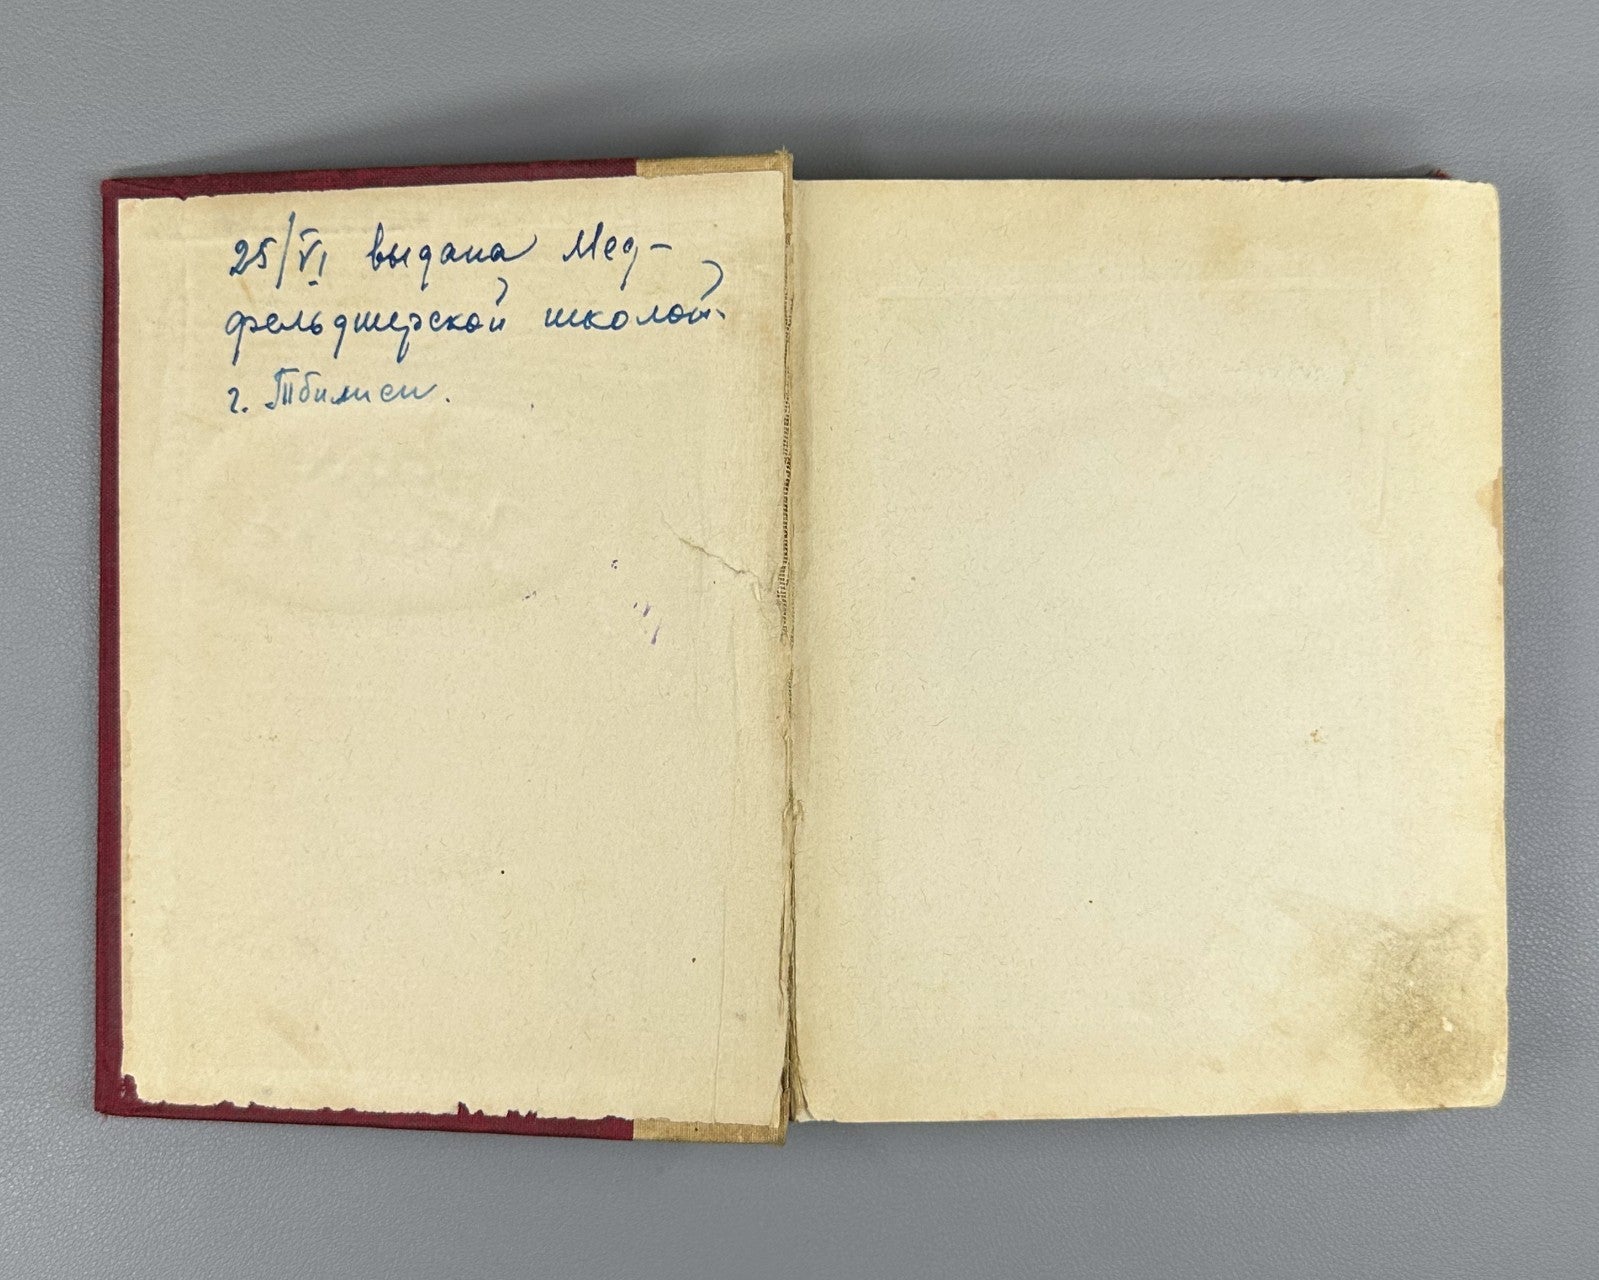 25/VI выдана Мед-
фельдшерской школой
г. Тбилиси.